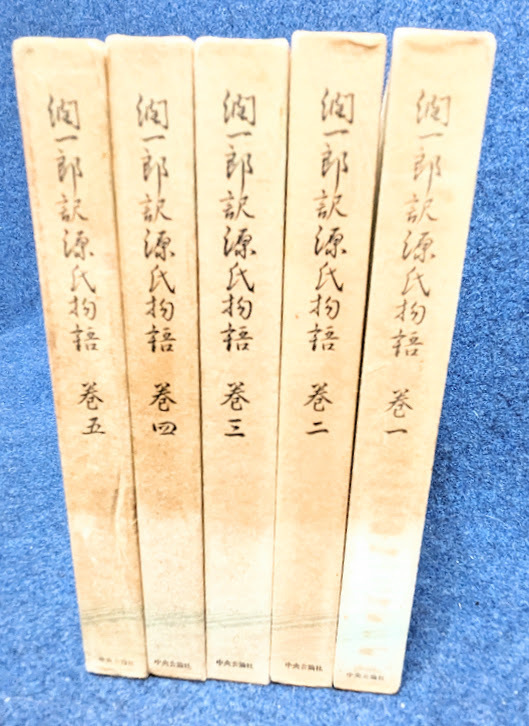 潤一郎訳源氏物語 巻一
中央公論社
潤一郎訳源氏物語 巻二
中央公論社
潤一郎訳源氏物語 巻三
中央公論社
潤一郎訳源氏物語 巻四
中央公論社
潤一郎訳源氏物語 巻五
中央公論社